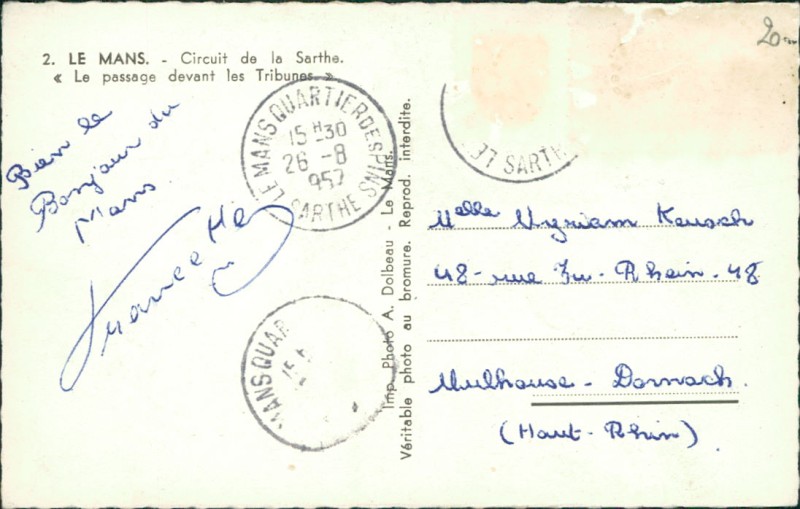 2. LE MANS. - Circuit de la Sarthe.
« Le passage devant les Tribunes. »
20-
Bien le
Bonjour du
Mans
Francette
LE MANS QUARTIER DES PINS
15 H 30
26 - 8
957
SARTHE
SARTH
MANS QUAR
15
Imp. Photo A. Dolbeau - Le Mans.
Véritable photo au bromure. Reprod. interdite.
Melle Myriam
48 - rue Zu - Rhein - 48
Mulhouse - Dornach.
(Haut - Rhin)